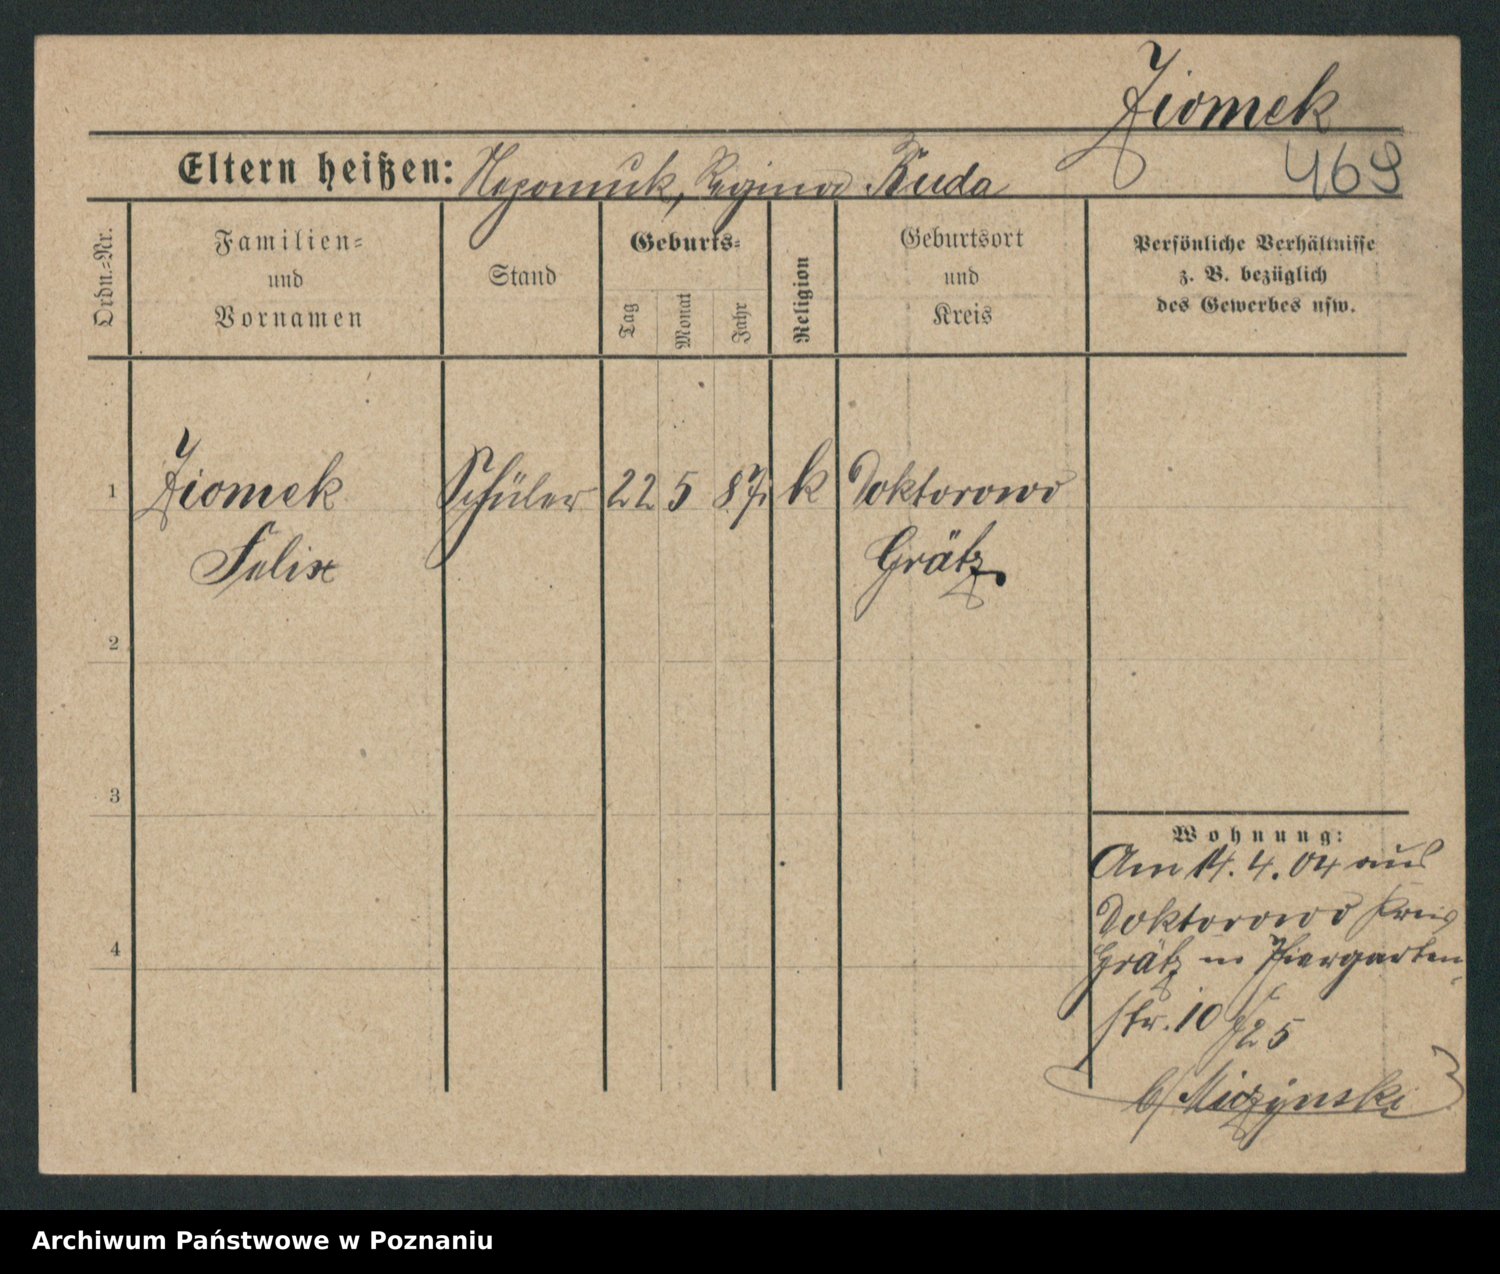 Ziomek
469
Eltern heißen: Nepomuk, Regina Buda
Ordn.=Nr.
Familien=
und
Vornamen
Stand
Geburts=
Tag
Monat
Jahr
Religion
Geburtsort
und
Kreis
Persönliche Verhältnisse
z. B. bezüglich
des Gewerbes usw.
1 Ziomek Schüler 22 5 87 k Doktorowo
Felix Grätz
2
3
4
Wohnung:
Am 14. 4. 04 aus
Doktorowo Kreis
Grätz in Thiergarten-
str. 10
b/ Miczynski
Archiwum Państwowe w Poznaniu